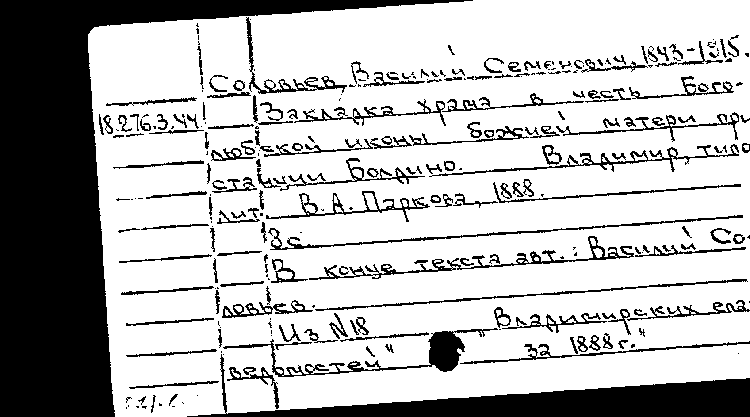 Соловьев, Василий Семенович, 1843-1915.
Закладка храма в честь Бого-
18.276.3.44
любской иконы божией матери при
станции Болдино. Владимир, типо
лит. В.А. Паркова, 1888.
8с.
В конце текста авт.: Василий Со-
ловьев.
Из №18 „Владимирских епа
ведомостей" за 1888г."